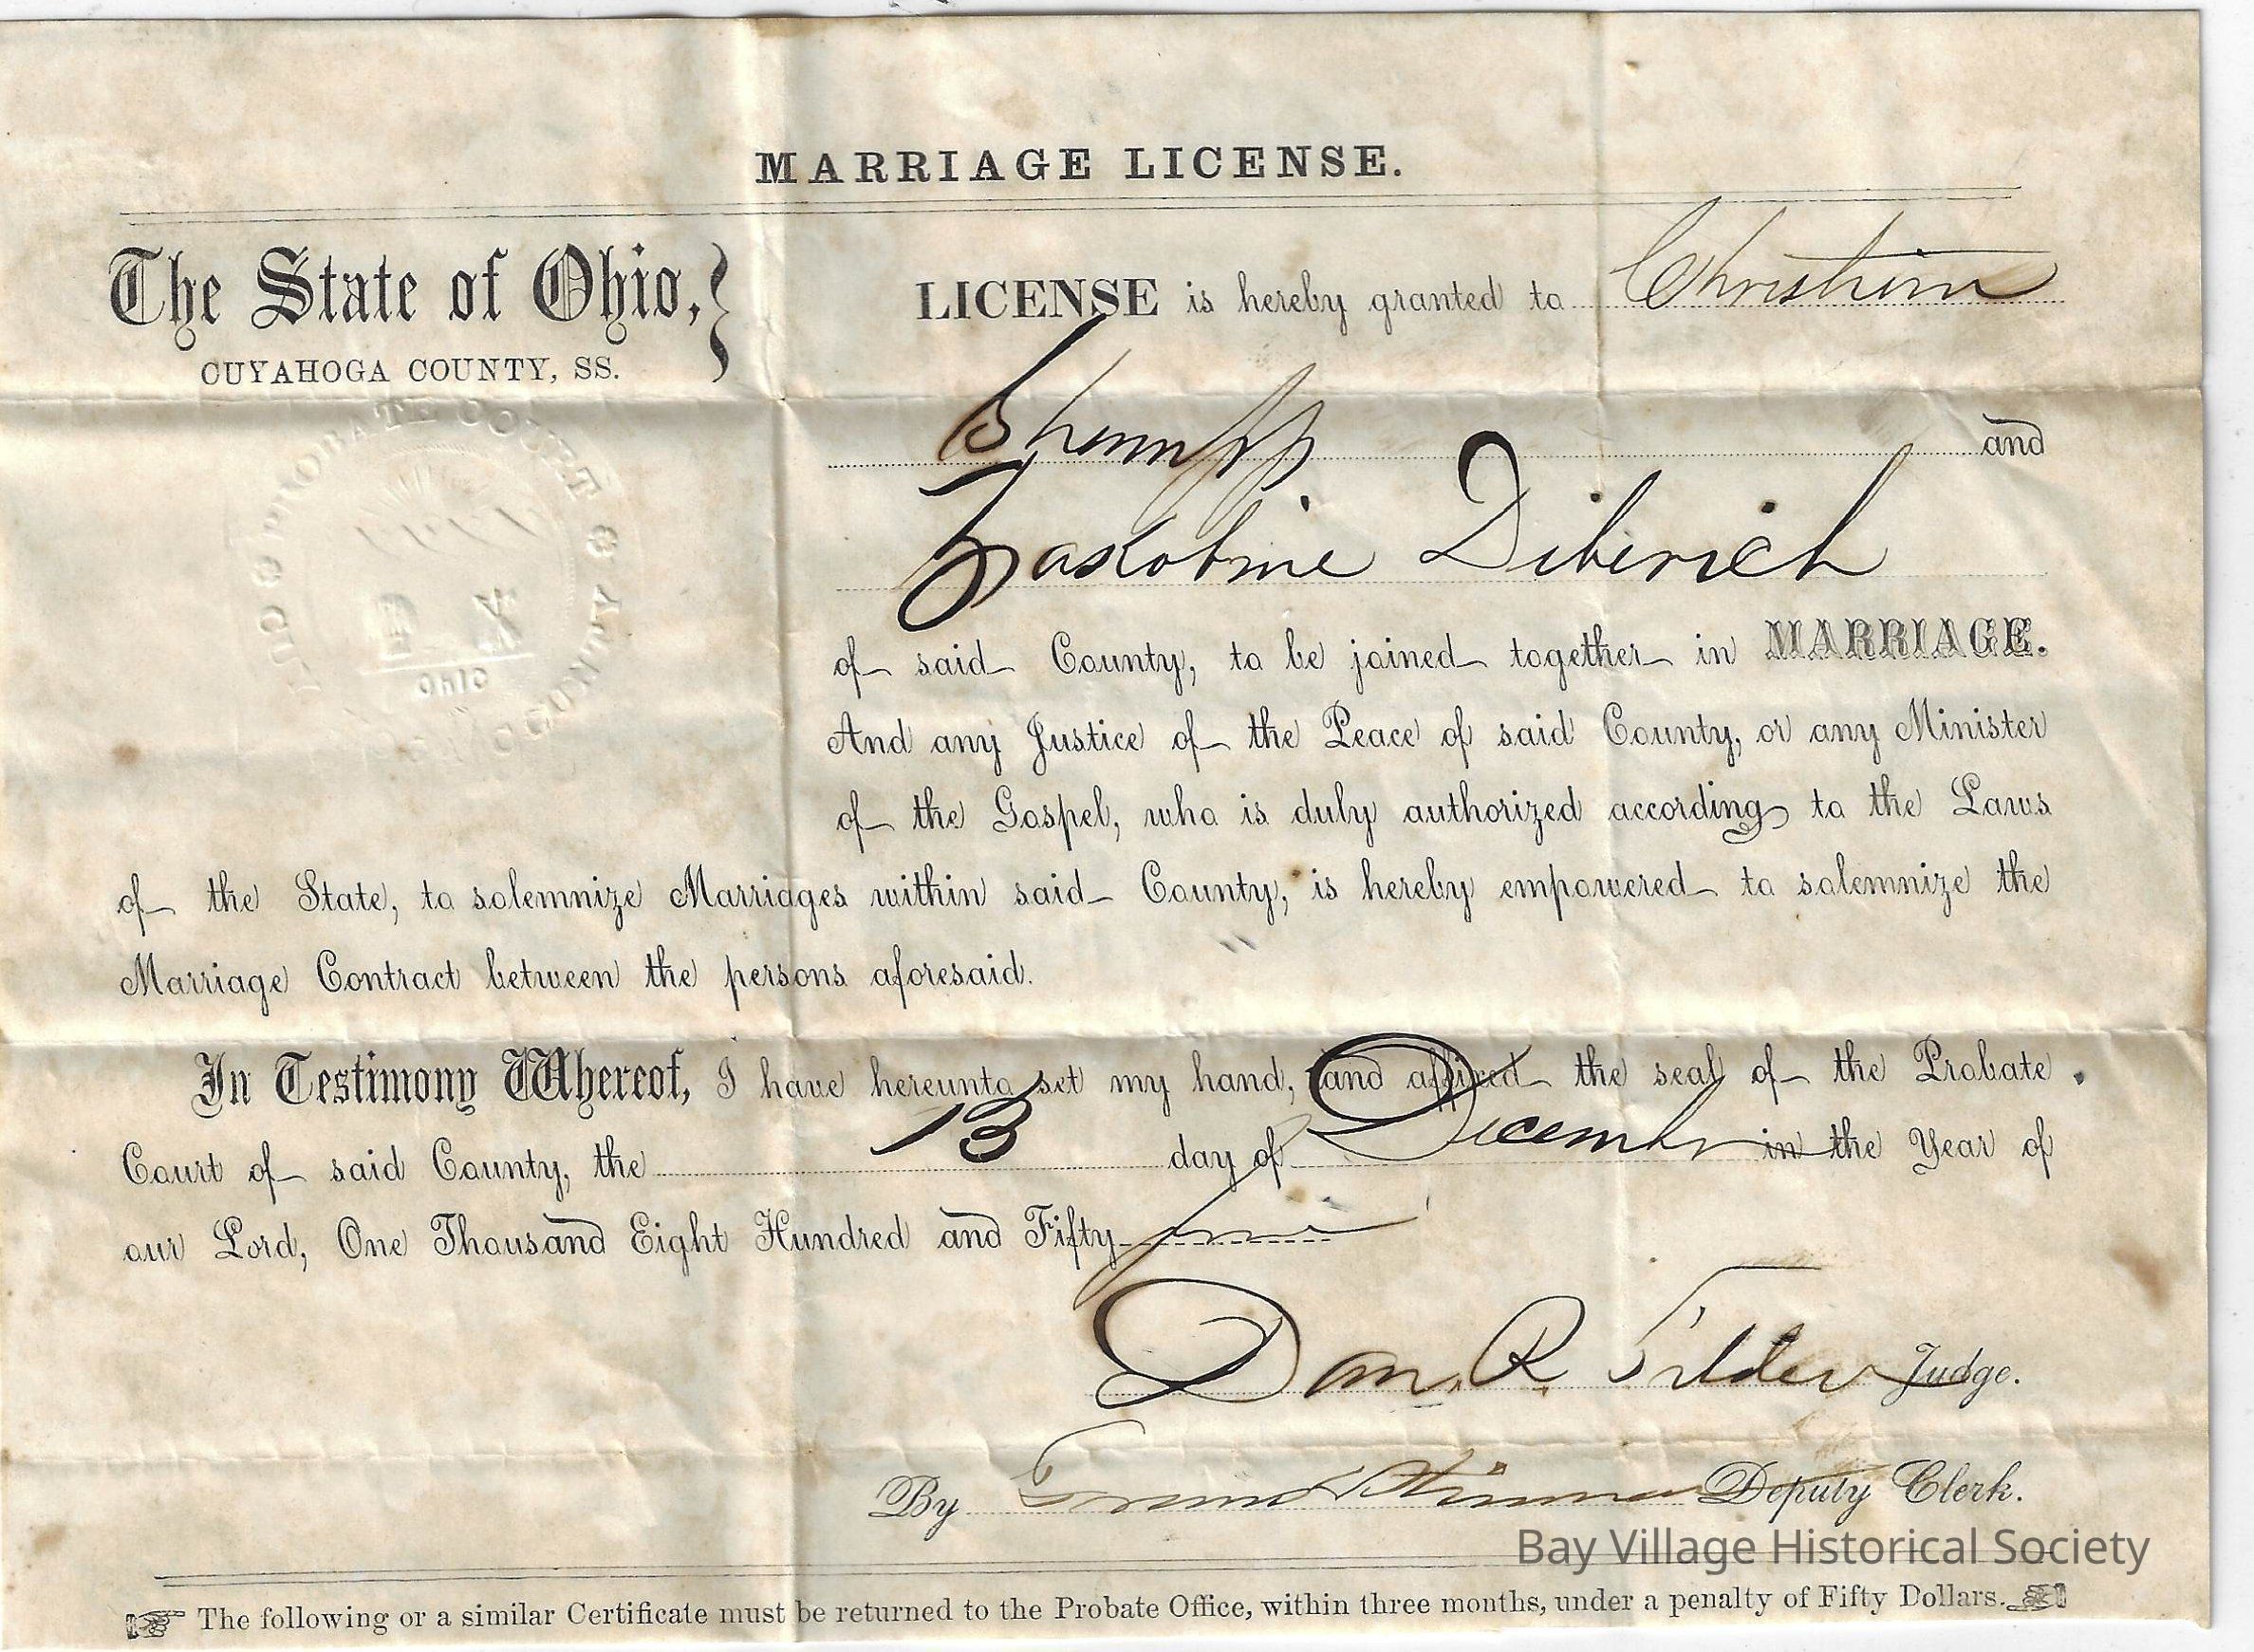 MARRIAGE LICENSE.
The State of Ohio,
CUYAHOGA COUNTY, SS.
LICENSE is hereby granted to Christian
and
Jakobine Diberich
of said County, to be joined together in MARRIAGE.
And any Justice of the Peace of said County, or any Minister
of the Gospel, who is duly authorized according to the Laws
of the State, to solemnize Marriages within said County, is hereby empowered to solemnize the
Marriage Contract between the persons aforesaid.
In Testimony Whereof, I have hereunto set my hand, and affixed the seal of the Probate
Court of said County, the 13 day of December in the Year of
our Lord, One Thousand Eight Hundred and Fifty
Dan. R. Tilden Judge.
By Deputy Clerk.
Bay Village Historical Society
The following or a similar Certificate must be returned to the Probate Office, within three months, under a penalty of Fifty Dollars.
PROBATE COURT
Ohio